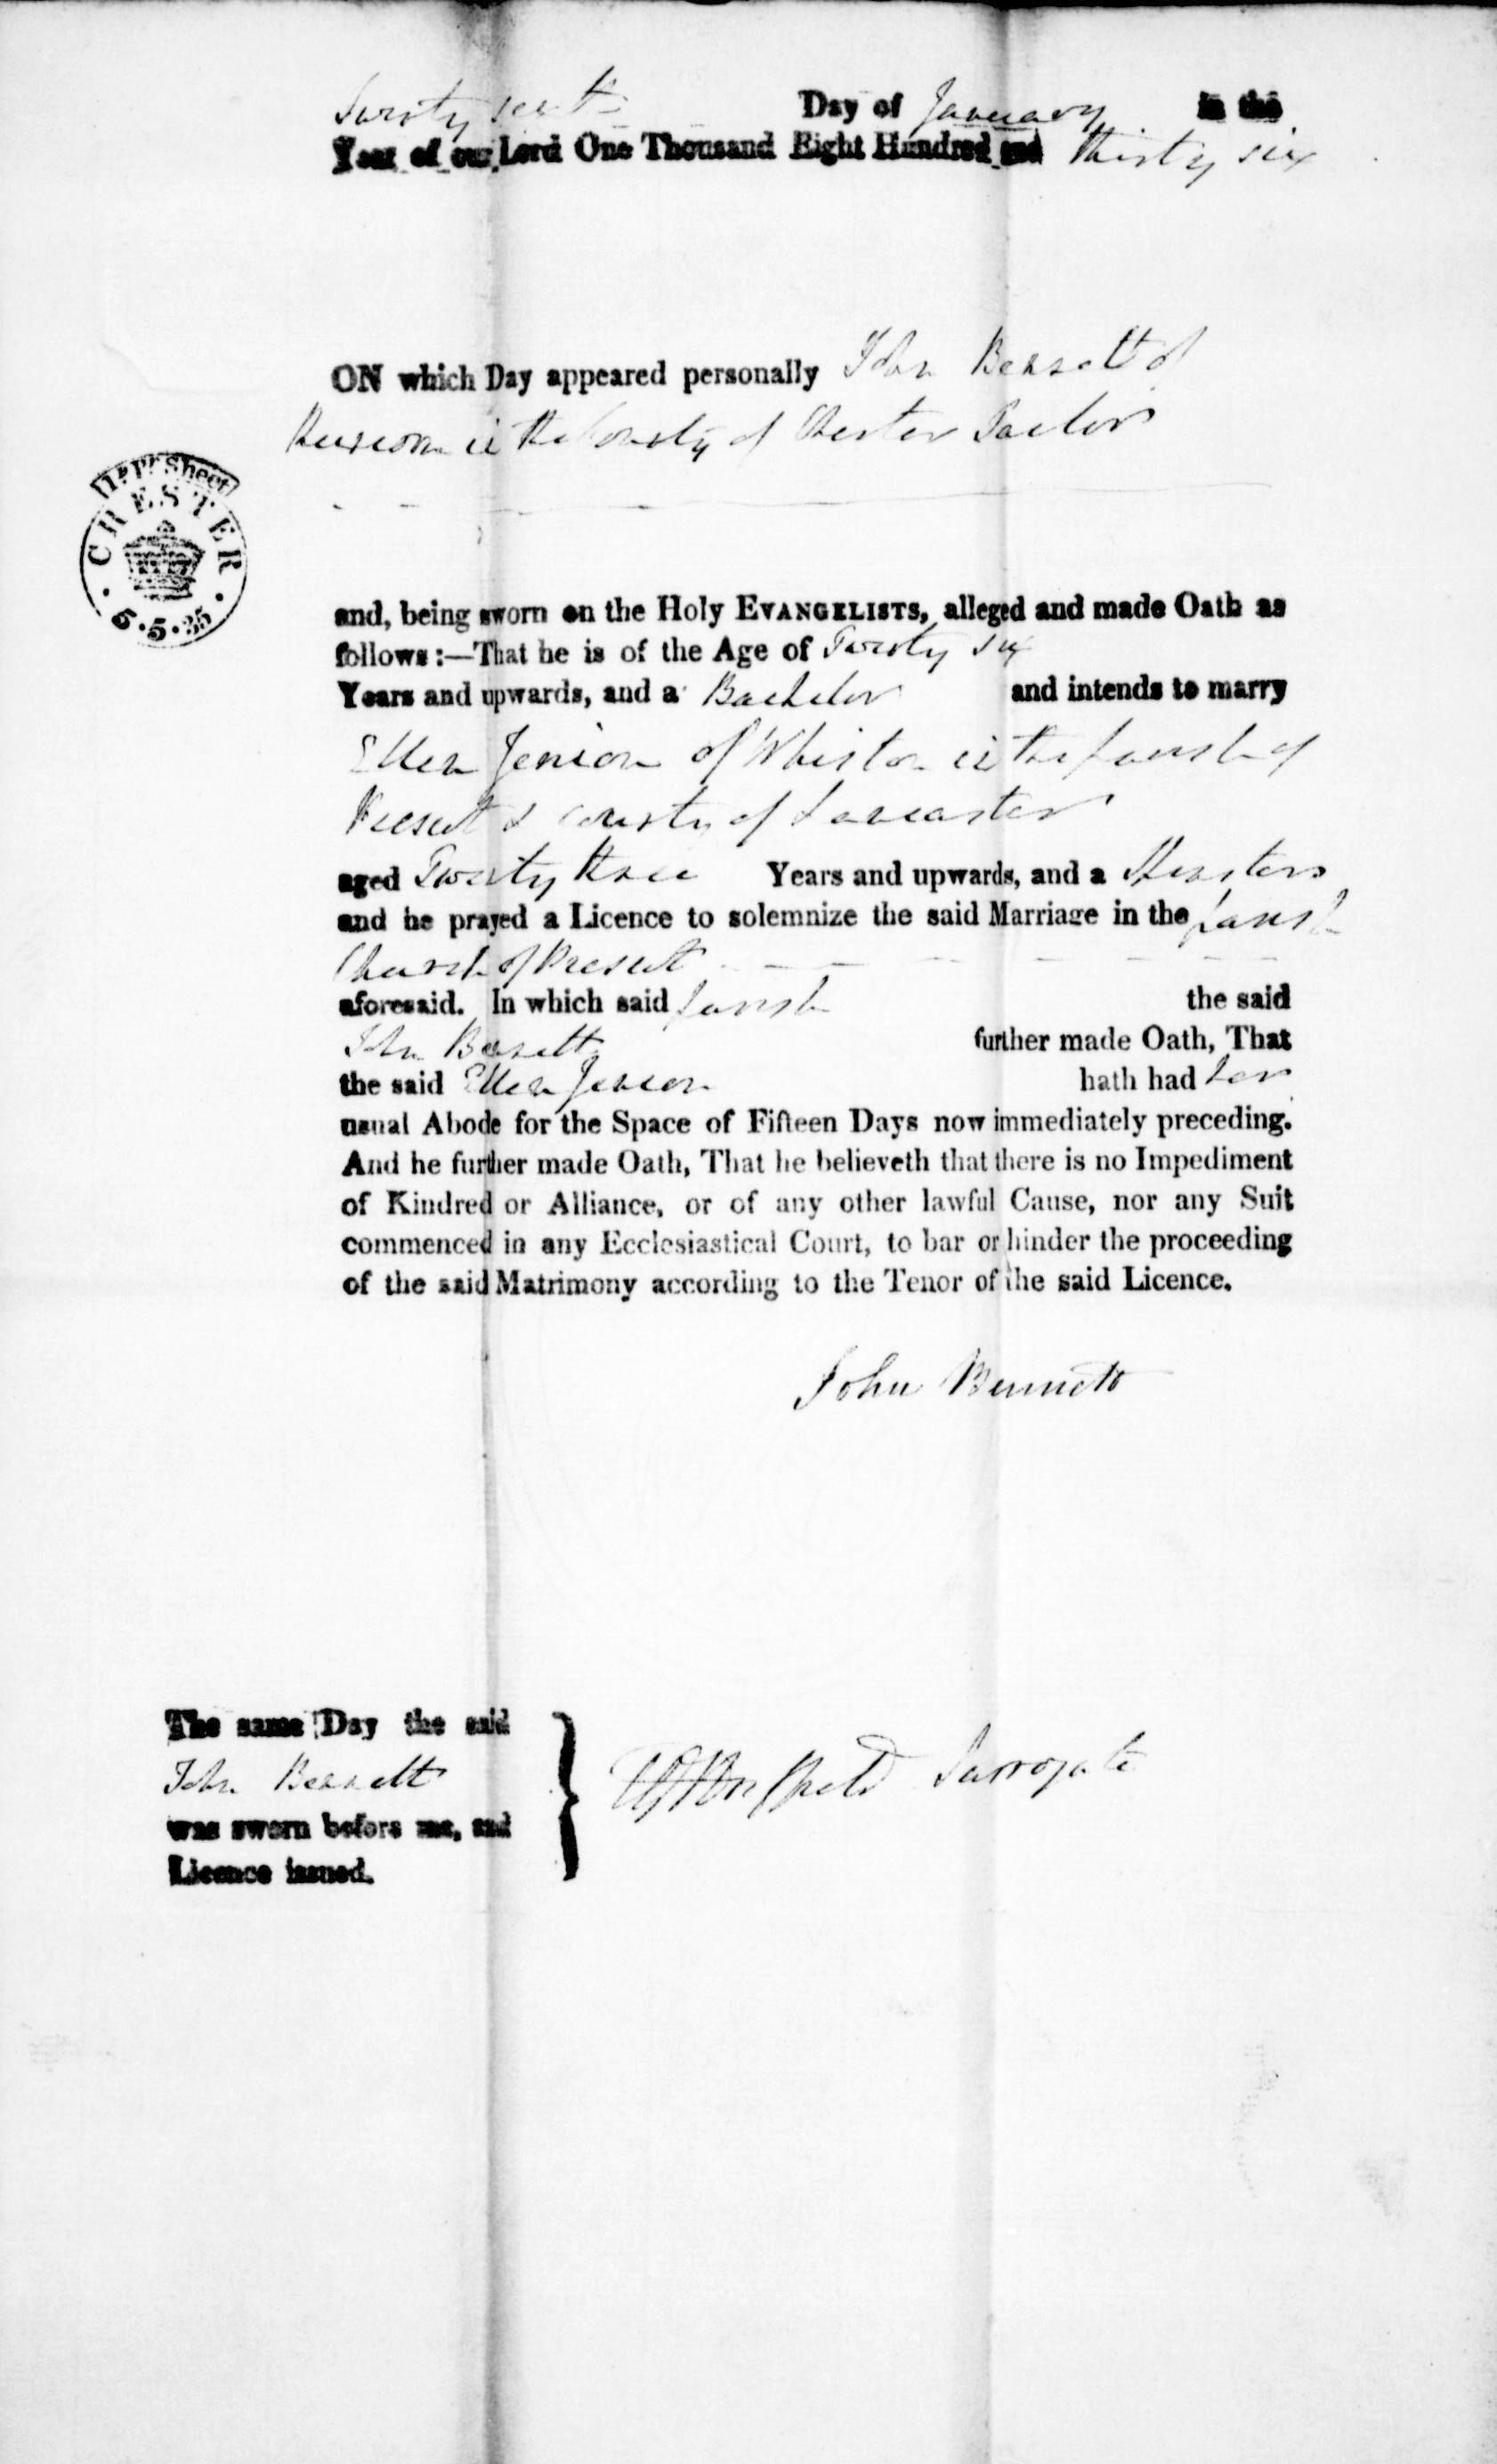 Twenty sixth Day of January in the
Year of our Lord One Thousand Eight Hundred and thirty six
ON which Day appeared personally John Bennett of
Runcorn in the County of Chester Sailor
CHESTER
5.5.35
and, being sworn on the Holy EVANGELISTS, alleged and made Oath as
follows:—That he is of the Age of Twenty six
Years and upwards, and a Bachelor and intends to marry
Ellen Jenion of Whiston in the parish of
Prescot & County of Lancaster
aged Twenty three Years and upwards, and a Spinster
and he prayed a Licence to solemnize the said Marriage in the parish
Church of Prescot
aforesaid. In which said parish the said
John Bennett further made Oath, That
the said Ellen Jenion hath had her
usual Abode for the Space of Fifteen Days now immediately preceding.
And he further made Oath, That he believeth that there is no Impediment
of Kindred or Alliance, or of any other lawful Cause, nor any Suit
commenced in any Ecclesiastical Court, to bar or hinder the proceeding
of the said Matrimony according to the Tenor of the said Licence.
John Bennett
The same Day the said
John Bennett
was sworn before me, and
Licence issued.
Surrogate